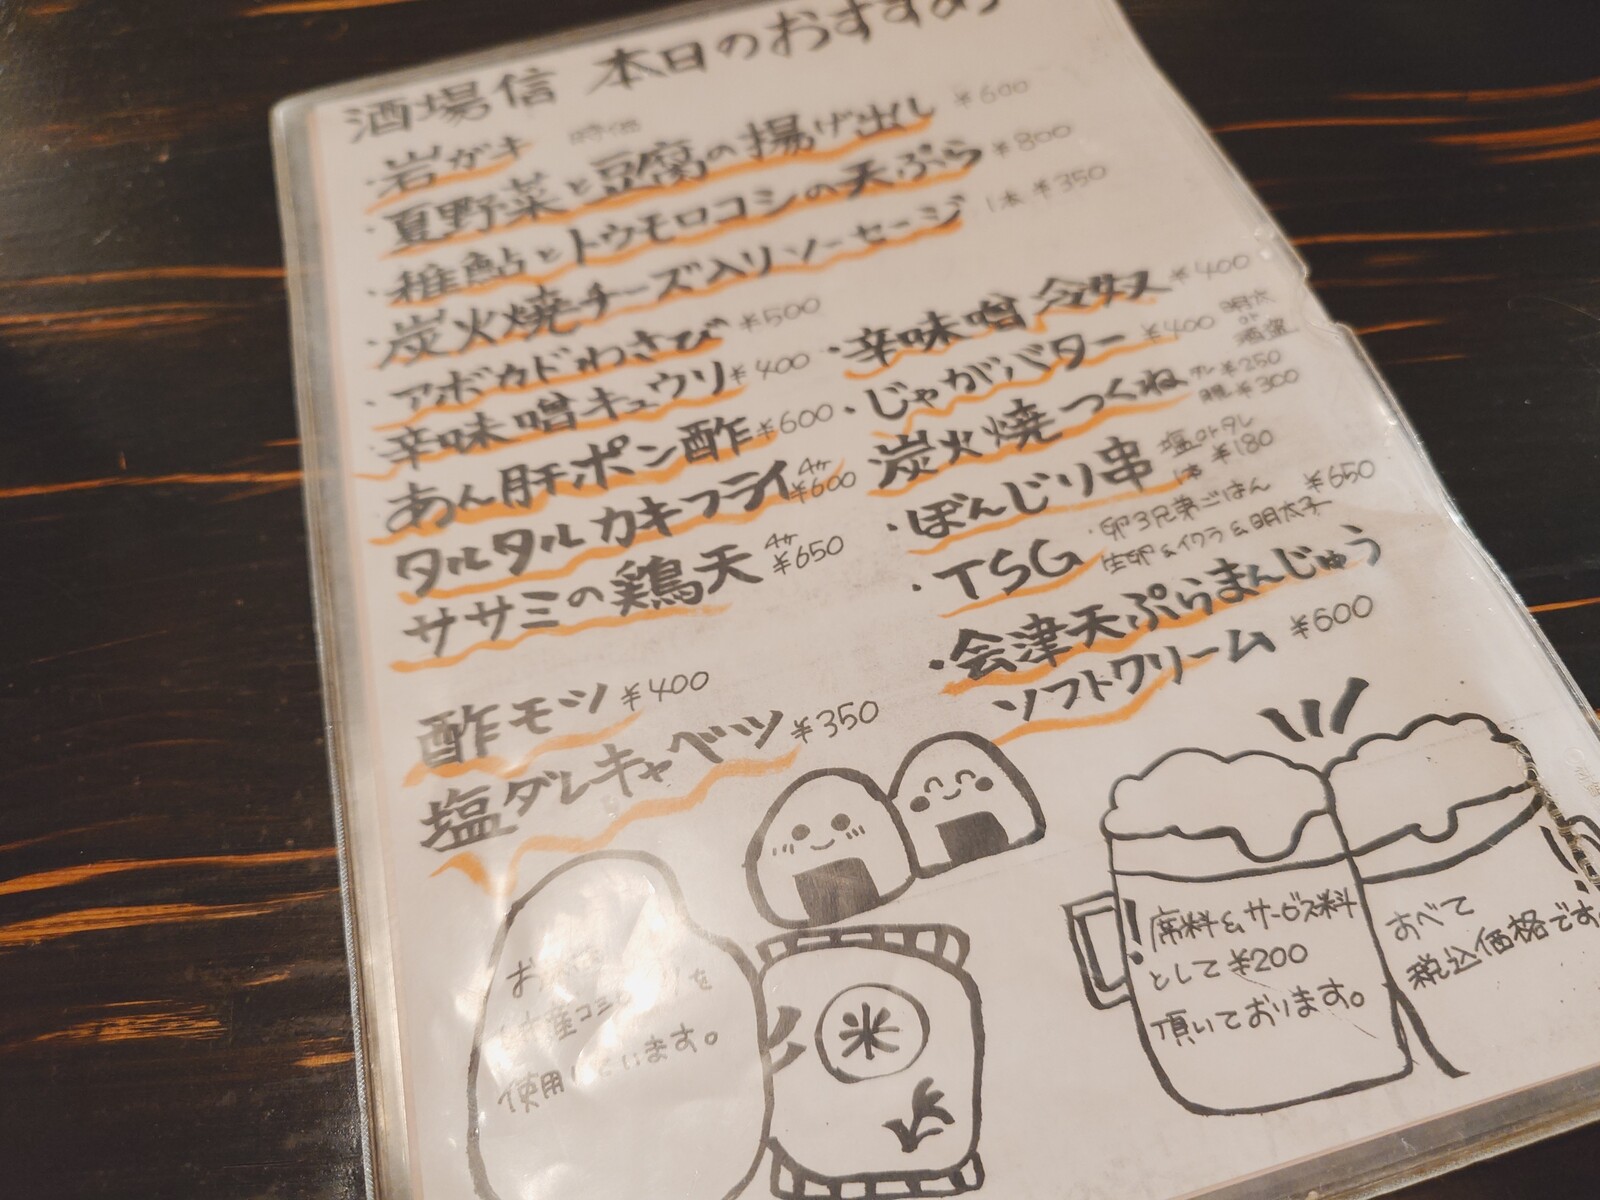 酒場信 本日のおすすめ
・岩ガキ 時価
・夏野菜と豆腐の揚げ出し ¥600
・稚鮎とトウモロコシの天ぷら ¥800
・炭火焼チーズ入りソーセージ 1本 ¥350
・アボカドわさび ¥500
辛味噌キュウリ ¥400
あん肝ポン酢 ¥600
タルタルカキフライ 4ヶ ¥600
ササミの鶏天 4ヶ ¥650
酢モツ ¥400
塩ダレキャベツ ¥350
・辛味噌冷奴 ¥400
・じゃがバター ¥400 明太 or 酒盗
炭火焼つくね タレ ¥250
¥300
・ぼんじり串 塩orタレ
1本 ¥180
・TSG ・卵3兄弟ごはん ¥650
生卵&イクラ&明太子
・会津天ぷらまんじゅう
ソフトクリーム ¥600
米
使用しています。
席料&サービス料
として¥200
頂いております。
すべて
税込価格です